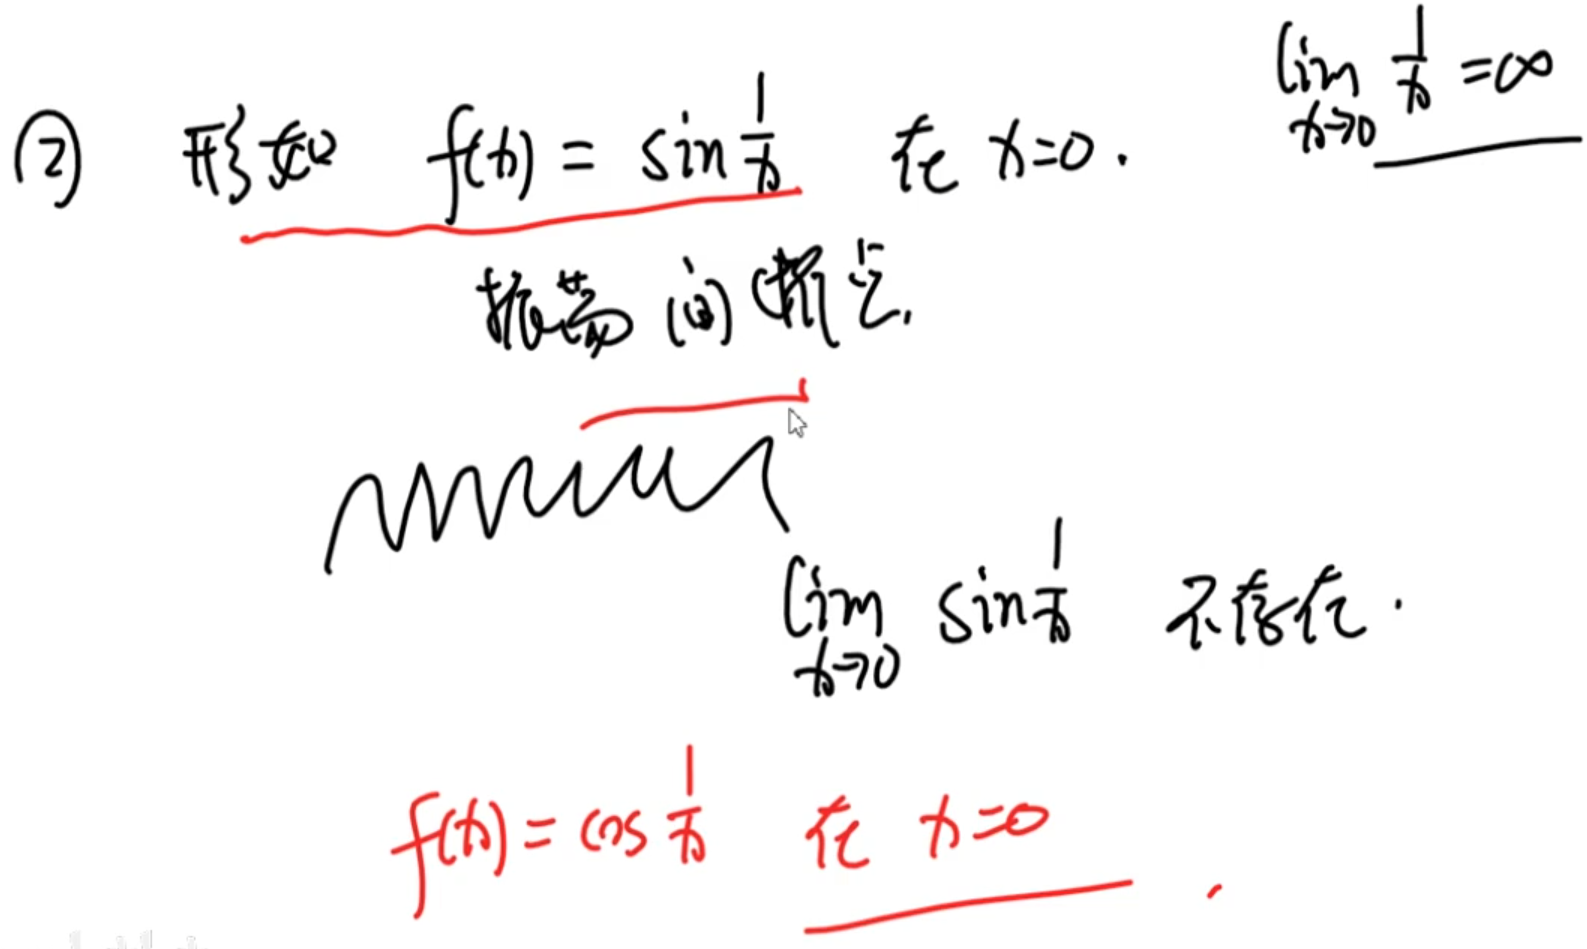 ② 形如 f(x) = sin 1/x 在 x=0.
lim x→0 1/x = ∞
振荡间断点.
lim x→0 sin 1/x 不存在.
f(x) = cos 1/x 在 x=0 .